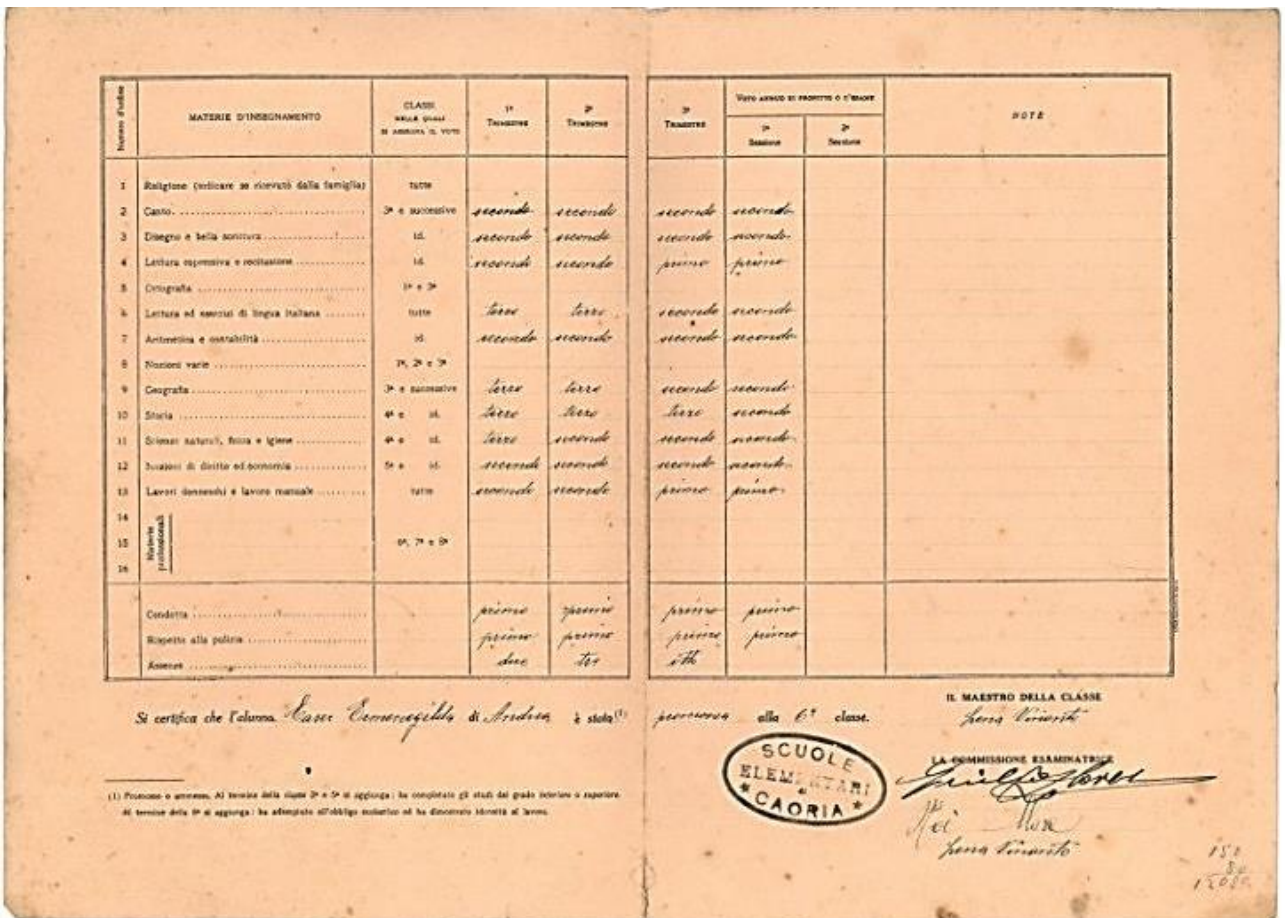 Numero d'ordine MATERIE D'INSEGNAMENTO CLASSI NELLE QUALI SI ASSEGNA IL VOTO 1º TRIMESTRE 2º TRIMESTRE 3º TRIMESTRE VOTO ANNUO DI PROFITTO O D'ESAME 1ª Sessione 2ª Sessione NOTE
1 Religione (indicare se ricevuta dalla famiglia) tutte
2 Canto 3ª e successive secondo secondo secondo secondo
3 Disegno e bella scrittura id. secondo secondo secondo secondo
4 Lettura espressiva e recitazione id. secondo secondo primo primo
5 Ortografia
6 Lettura ed esercizi di lingua italiana tutte terzo terzo secondo secondo
7 Aritmetica e contabilità id. secondo secondo secondo secondo
8 Nozioni varie 1ª, 2ª e 3ª
9 Geografia 3ª e successive terzo terzo secondo secondo
10 Storia 4ª e id. terzo terzo terzo secondo
11 Scienze naturali, fisica e igiene 4ª e id. terzo secondo secondo secondo
12 Nozioni di diritto ed economia 5ª e id. secondo secondo secondo secondo
13 Lavori donneschi e lavoro manuale tutte secondo secondo primo primo
14
15 Materie professionali 6ª, 7ª e 8ª
16
Condotta primo primo primo primo
Rispetto alla pulizia primo primo primo primo
Assenze due tre
Si certifica che l'alunna Ermenegilda di Andrea è stata (1) promossa alla 6ª classe.
IL MAESTRO DELLA CLASSE
LA COMMISSIONE ESAMINATRICE
SCUOLE
ELEMENTARI
CAORIA
(1) Promosso o ammesso. Al termine della classe 3ª e 5ª si aggiunga: ha completato gli studi del grado inferiore o superiore.
Al termine della 8ª si aggiunga: ha adempiuto all'obbligo scolastico ed ha dimostrato idoneità al lavoro.